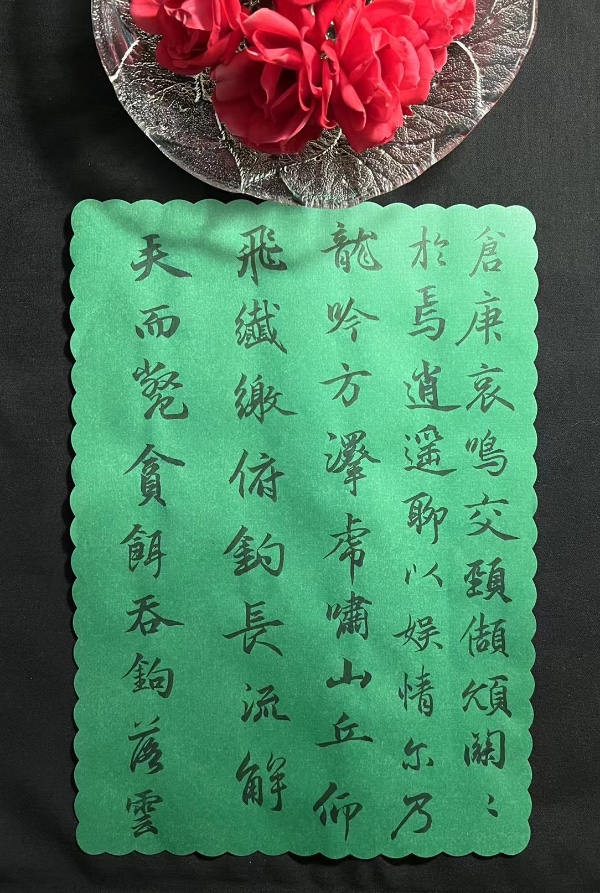 倉庚哀鳴交頸頡頏關〻
於焉逍遥聊以娱情尔乃
龍吟方澤虎嘯山丘仰
飛纖繳俯釣長流觧
矢而斃貪餌吞鉤落雲